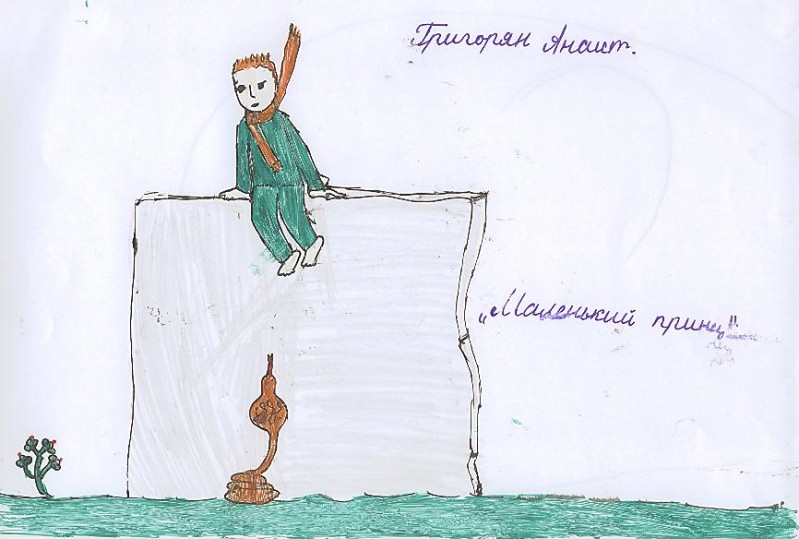 Григорян Анаит.
„Маленький принц"